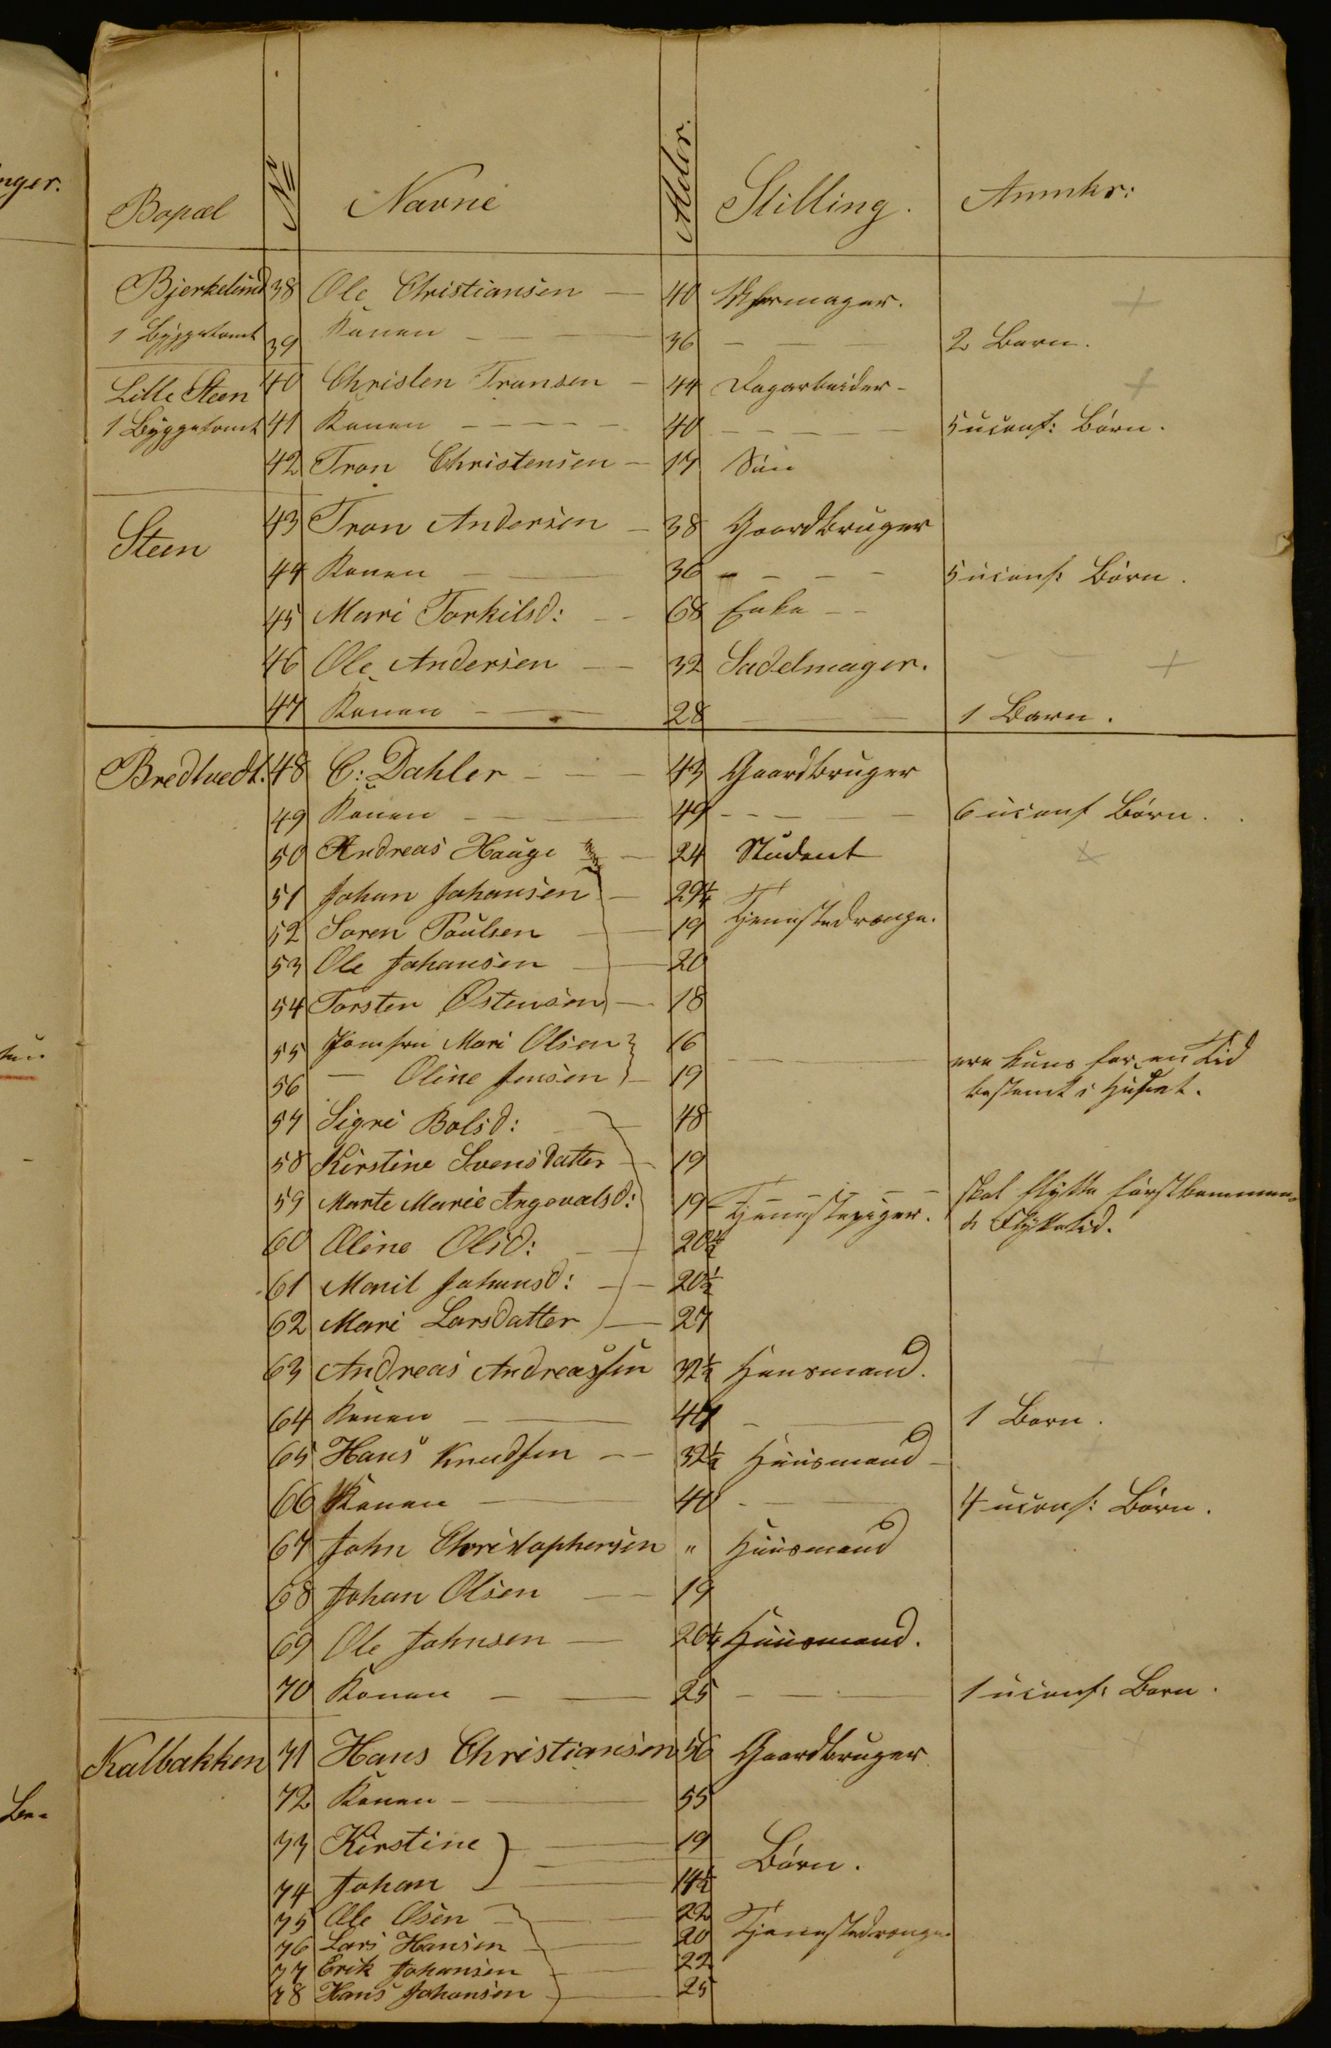 nger.
Bopæl No Navne Alder. Stilling. Anmkr:
Bjerkelund 38 Ole Christiansen — 40 Uhrmager. +
1 Byggetomt 39 Konen — — 36 — — — 2 Barn.
Lille Steen 40 Christen Transen — 44 Dagarbeider — +
1 Byggetomt 41 Konen — — — — 40 — — — — 5 uconf: Børn.
42 Tron Christensen — 17 Søn
Steen 43 Tron Andersen — 38 Gaardbruger
44 Konen — — 36 — — — — 5 uconf: Børn.
45 Mari Torkilsd: — — 68 Enke — —
46 Ole Andersen — — 32 Sadelmager. — — +
47 Konen — — 28 — — 1 Barn.
Bredtvedt. 48 C: Dahler — — — 43 Gaardbruger
49 Konen — — — 49 — — — — 6 uconf Børn.
50 Andreas Hauge — 24 Student +
51 Johan Johansen — 29¼
52 Soren Poulsen — 19 Tjenestedrænge.
53 Ole Johansen — 20
54 Torsten Østensen — 18
55 Jomfru Mari Olsen 16 — — ere kuns for en Tid
56 — Oline Jensen — 19 bestemt i Huset.
57 Sigri Bolsd: — 48
58 Kirstine Svensdatter — 19
59 Marte Marie Ingevalsd: 19 Tjenestepiger. skal flytte førstkommen-
60 Oline Olsd: — 20½ de Flyttetid.
61 Marit Johansd: — — 20½
62 Mari Larsdatter — 27
63 Andreas Andreassen 32½ Huusmand. +
64 Konen — — 47 — — 1 Barn.
65 Hans Knudsen — — 32½ Huusmand —
66 Konen — — 40 — — 4 uconf: Børn.
67 John Christophersen " Huusmand
68 Johan Olsen — — 19
69 Ole Johnsen — 26¼ Huusmand.
70 Konen — — 25 — — — 1 uconf: Barn.
Kalbakken 71 Hans Christiansen 56 Gaardbruger +
72 Konen — — 55
73 Kirstine — 19
74 Johan — 14½ Børn.
75 Ole Olsen — 22
76 Lars Hansen — 20 Tjenestedrænge.
77 Erik Johansen — 22
78 Hans Johansen — 25